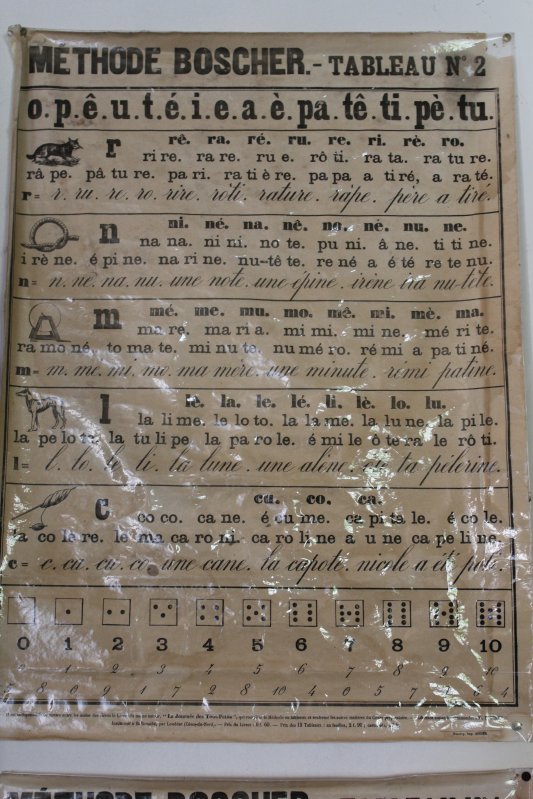 MÉTHODE BOSCHER.- TABLEAU N° 2
o.p.ê.u.t.é.i.e.a.è.pa.tê.ti.pè.tu.
r rê. ra. ré. ru. re. ri. rè. ro.
ri re. ra re. ru e. rô ti. ra ta. ra tu re.
râ pe. pâ tu re. pa ri. ra ti è re. pa pa a ti ré, a ra té.
r = r. ru. re. ro. rire. rôti. rature. râpe. père a tiré.
n ni. né. na. nê. no. nè. nu. ne.
na na. ni ni. no te. pu ni. â ne. ti ti ne.
i rè ne. é pi ne. na ri ne. nu-tê te. re né a é té re te nu.
n = n. ne. na. nu. une note. une épine. irène ira nu-tête.
m mé. me. mu. mo. mê. mi. mè. ma.
ma re. ma ri a. mi mi. mi ne. mé ri te.
ra mo né. to ma te. mi nu te. nu mé ro. ré mi a pa ti né.
m = m. me. mi. mo. ma mère. une minute. rémi patine.
l lè. la. le. lé. li. lè. lo. lu.
la li me. le lo to. la la me. la lu ne. la pi le.
la pe lo te. la tu li pe. la pa ro le. é mi le ô te ra le rô ti.
l = l. lo. le. li. la lune. une alène. ôte ta pèlerine.
c cu. co. ca.
co co. ca ne. é cu me. ca pi ta le. é co le.
a co lè re. le ma ca ro ni. ca ro li ne a u ne ca pe li ne.
c = c. cu. ca. co. une cane. la capote. nicole a été poli.
0 1 2 3 4 5 6 7 8 9 10
0 1 2 3 4 5 6 7 8 9 10
8 0 9 1 7 2 8 10 4 0 5 7 6 4
"La Journée des Tout-Petits"
MÉTHODE BOSCHER